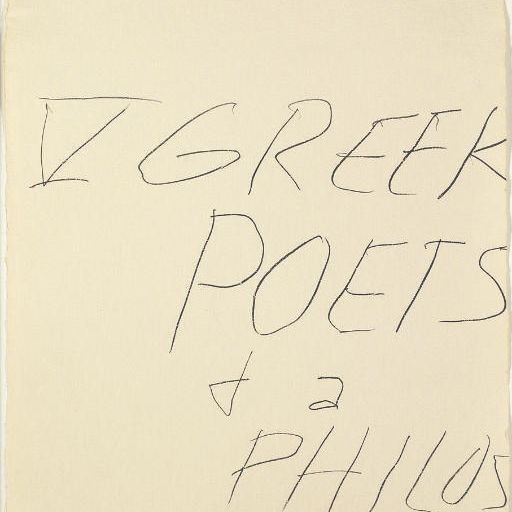 V GREEK
POETS
+ a
PHILOS